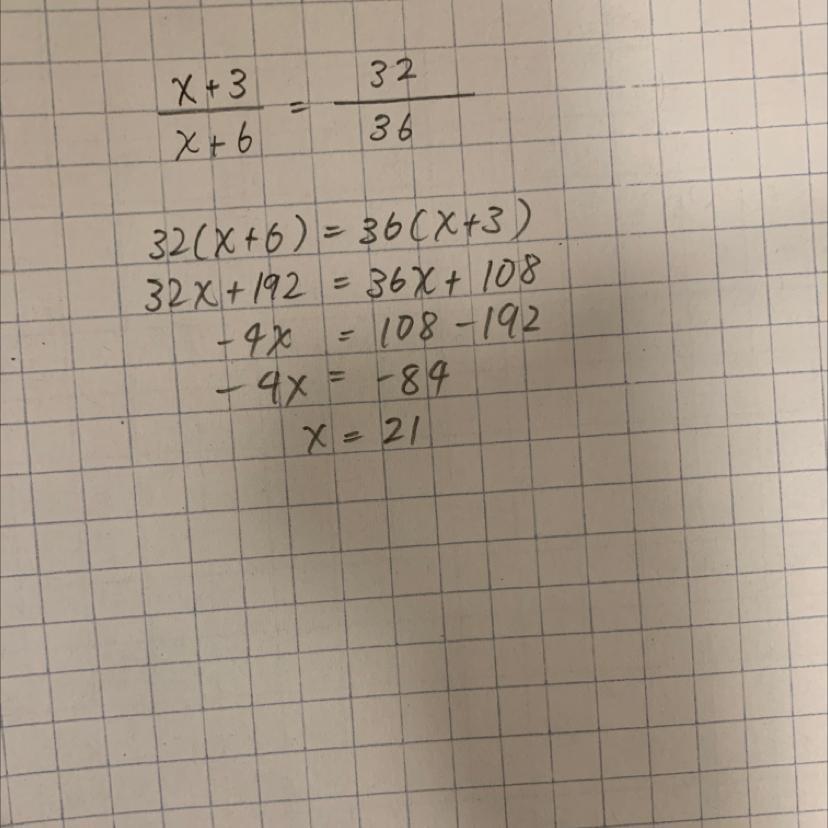 x+3/x+6 = 32/36
32(x+6) = 36(x+3)
32x+192 = 36x+108
-4x = 108-192
-4x = -84
x = 21